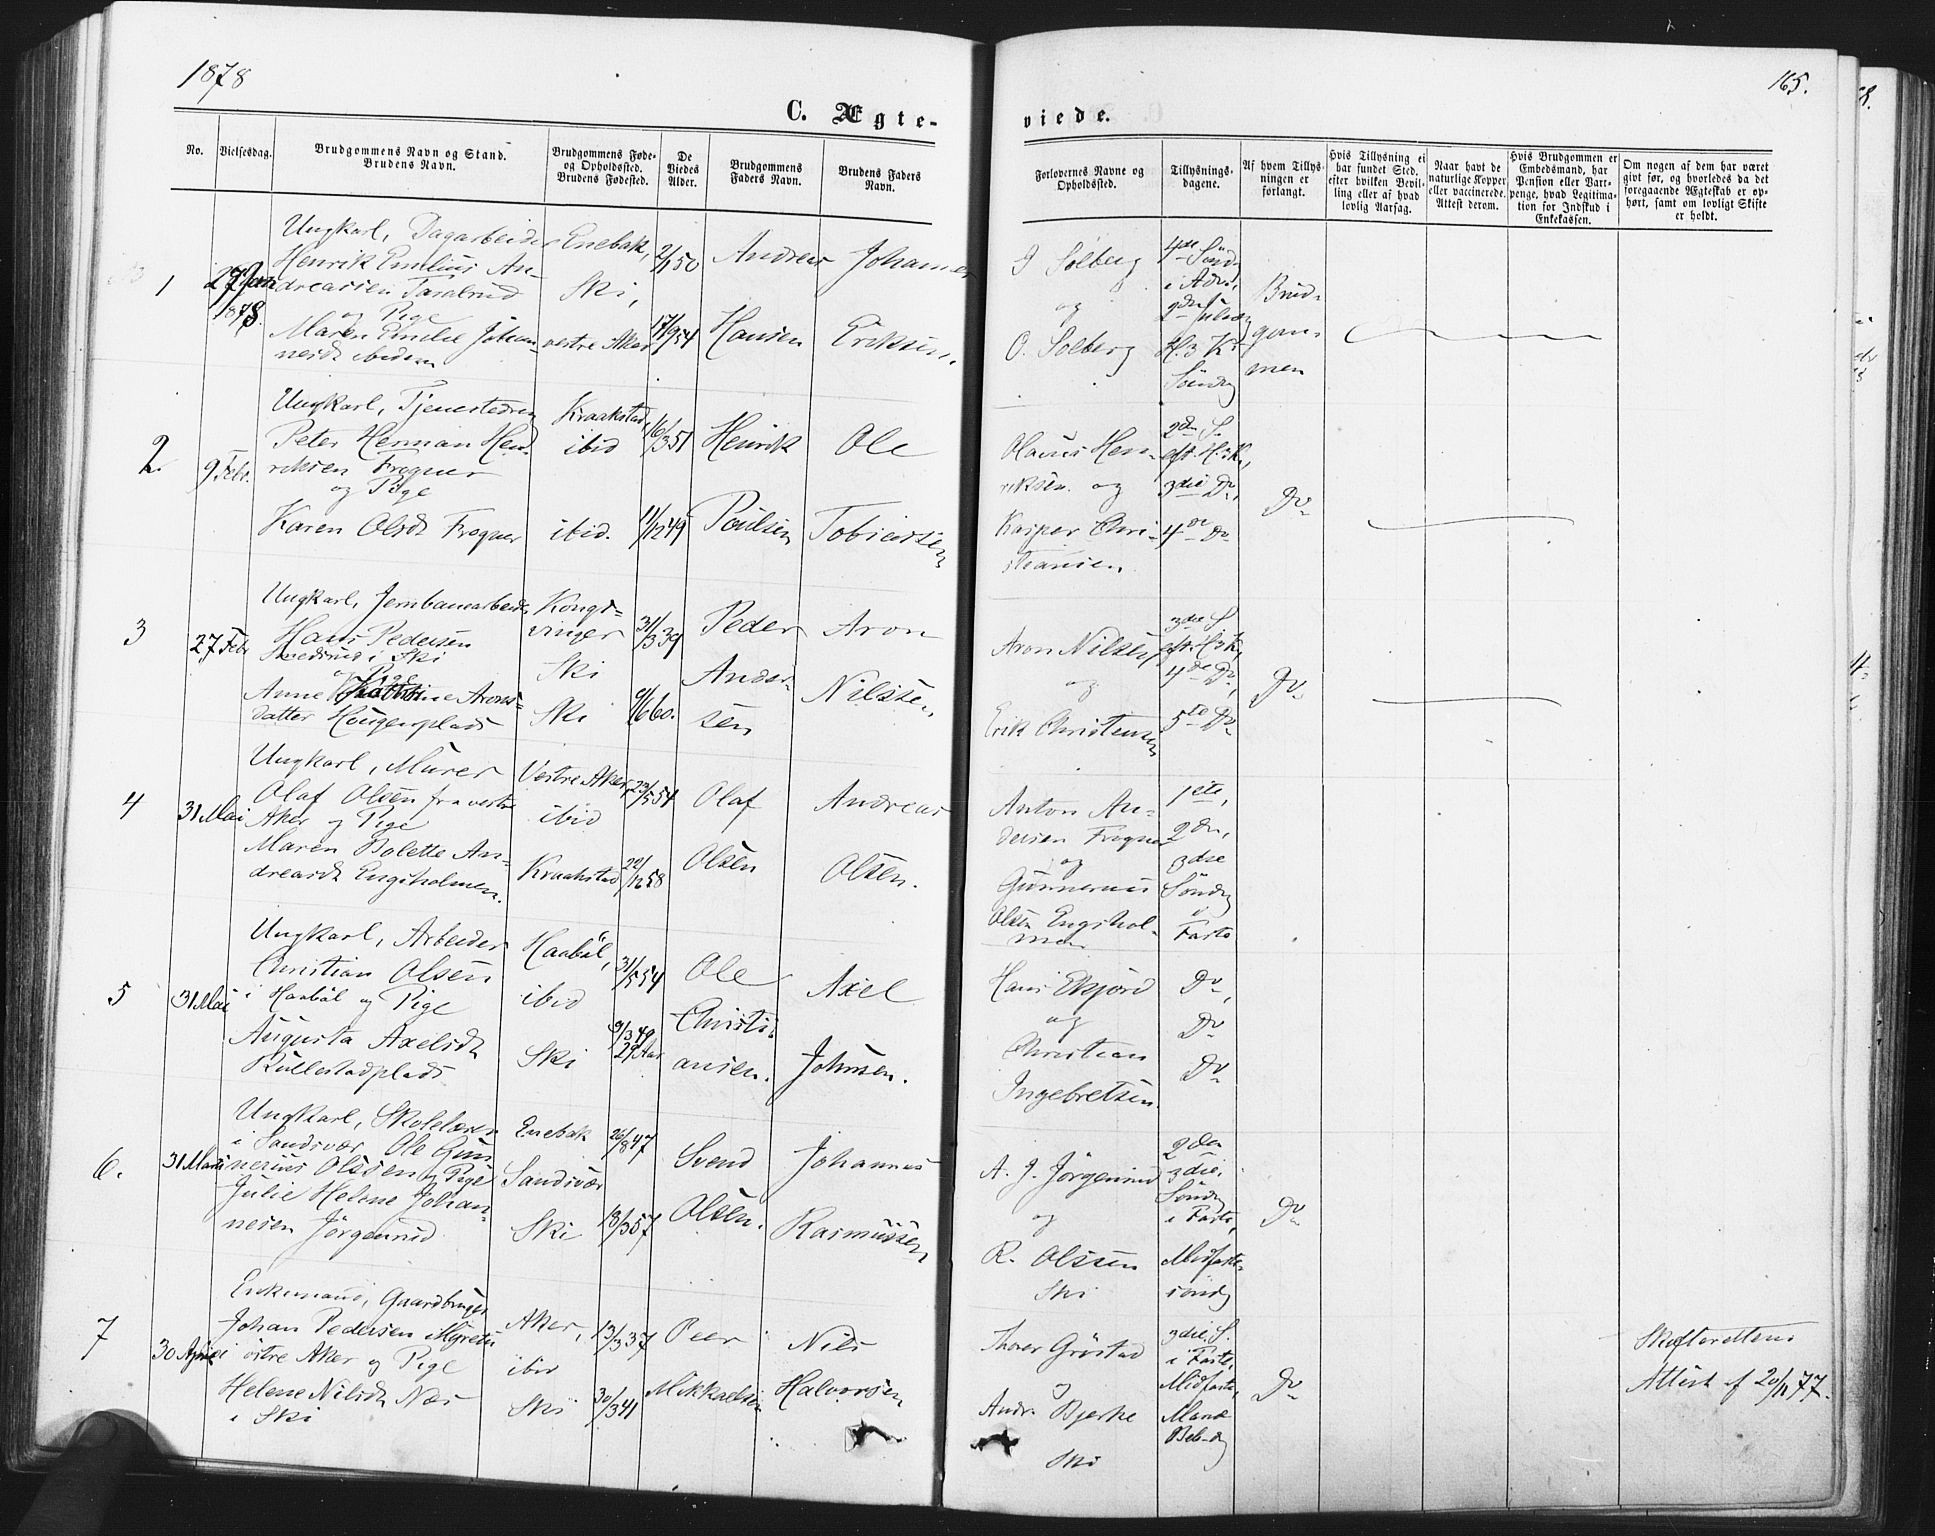 1878
165.
C. Ægte-
viede.
No.
Vielsesdag.
Brudgommens Navn og Stand.
Brudens Navn.
Brudgommens Føde-
og Opholdssted.
Brudens Fødested.
De
Viedes
Alder.
Brudgommens
Faders Navn.
Brudens Faders
Navn.
Forlovernes Navne og
Opholdssted.
Tillysnings-
dagene.
Af hvem Tillys-
ningen er
forlangt.
Hvis Tillysning ei
har fundet Sted,
efter hvilken Bevil-
ling eller af hvad
lovlig Aarsag.
Naar havt de
naturlige Kopper
eller vaccinerede.
Attest derom.
Hvis Brudgommen er
Embedsmand, har
Pension eller Vart-
penge, hvad Legitima-
tion for Indskud i
Enkekassen.
Om nogen af dem har været
givt før, og hvorledes da det
foregaaende Ægteskab er op-
hørt, samt om lovligt Skifte
er holdt.
1
27 Jan
1878.
Ungkarl, Dagarbeider
Henrik Emilius An-
dreassen Taralrud
og Pige
Maren Emelie Johan-
nesdt ibidem
Enebak,
Ski,
vestre Aker
2/1 50
17/9 54
Andreas
Hansen
Johannes
Eriksen.
J Solberg
og
O. Solberg
4de Sönd.
i Adv.,
2den Juledag
H. 3 K.
Söndag
Brud-
gom-
men
2.
9 Febr.
Ungkarl, Tjenestedreng
Peter Herman Hen-
riksen Frogner
og Pige
Karen Olsdt Frogner
Kraakstad,
ibid
ibid.
16/3 51
11/12 49
Henrik
Poulsen
Ole
Tobiassen
Olaus Hen-
riksen og
Kasper Chri-
stiansen
2den S.
eft. H. 3 K.,
3die Do,
4de Do
Do
3
27 Febr
Ungkarl, Jernbanearbeider
Hans Pedersen
Smedsrud i Ski
og Pige
Anne Kathrine Arons-
datter Haugerplads
Kongs-
vinger
Ski
Ski
31/3 39
9/6 60.
Peder
Ander-
sen
Aron
Nilssen,
Aron Nilsen
og
Erik Christensen
3die S
eft. H 3 K,
4de Do,
5te Do
Do
4
31 Mai
Ungkarl, Murer
Olaf Olsen fra vestre
Aker og Pige
Maren Bolette An-
dreasdt Engsholmen.
Vestre Aker,
ibid
Kraakstad
23/5 54
22/12 58
Olaf
Olsen
Andreas
Olsen.
Anton An-
dersen Frogner
og
Gunnerius
Olsen Engshol-
men
1ste,
2den,
3die
Söndag
i
Faste
5
31 Mai
Ungkarl, Arbeider
Christian Olsen
i Haabøl og Pige
Augusta Axelsdt
Kullestadplads
Haabøl,
ibid
Ski
31/5 54
9/3 49
29 Aar
Ole
Christi-
ansen.
Axel
Johnsen.
Hans Ekjord
og
Christian
Ingebretsen.
Do,
Do
Do
6.
31 Mai
Ungkarl, Skolelærer
i Sandsvær Ole Gun-
nerius Olsen og Pige
Julie Helene Johan-
nesen Jörgenrud
Enebak
Sandsvær
Ski
26/8 47
18/3 57
Svend
Olsen.
Johannes
Rasmussen
A. J. Jörgenrud
og
R. Olssen
Ski
2den
3die,
Söndag
i Faste,
Midfaste-
söndg
Do
7
30 April
Enkemand, Gaardbruger
Johan Pedersen Myrer i
östre Aker og Pige
Helene Nilsdt Næs
i Ski
Aker,
ibid
Ski
13/3 37
30/3 41
Peer
Mikkaelsen
Nils
Halvorsen
Thorer Gröstad
og
Andr. Bjerke
Ski
3die S.
i Faste,
Midfaste,
Mariæ
Beb.dg
Do
Skifterettens
Attest af 20/11 77.